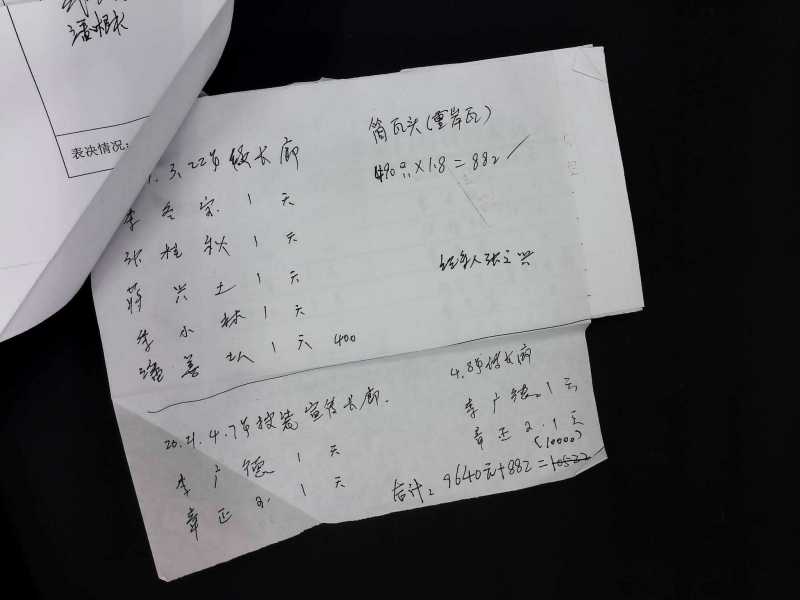 潘根水
表决情况：
3.22号 长廊
筒瓦头(重岸瓦)
490只×1.8=882
李 宝 1 天
张桂秋 1 天
蒋兴土 1 天
李小林 1 天
潘善 1 天 400
经手人张立兴
2021.4.7号按装宣传长廊.
李广德 1 天
章正 1 天
4.8号 长廊
李广德 1 天
章正 1 天
(10000)
合计: 9640元+882=10522